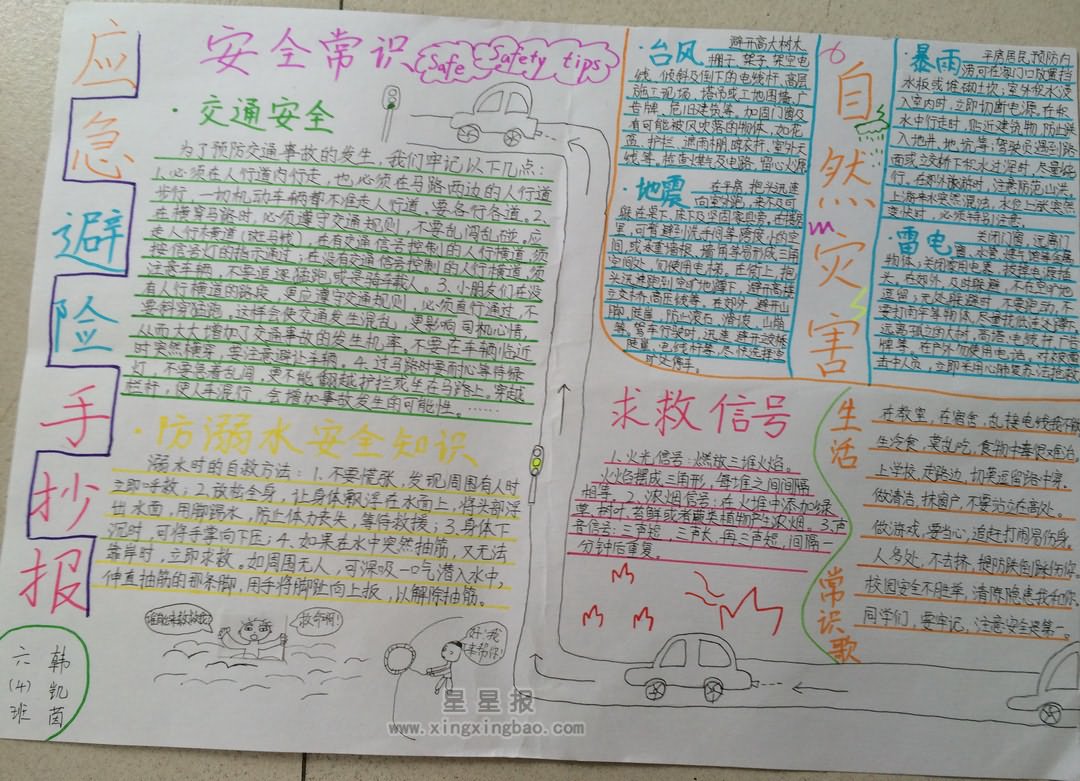 应急避险手抄报
安全常识
Safe Safety tips
·交通安全
为了预防交通事故的发生，我们牢记以下几点：
1.必须在人行道内行走，也必须在马路两边的人行道
步行，一切机动车辆都不准走人行道。要各行各道。2.
在横穿马路时，必须遵守交通规则，不要乱闯乱碰。应
走人行横道(斑马线)，在有交通信号控制的人行横道，须
按信号灯的指示通过；在没有交通信号控制的人行横道，须
注意车辆，不要追逐猛跑或是骑车载人。3.小朋友们在没
有人行横道的路段，更应遵守交通规则，必须直行通过，不
要斜穿猛跑。这样会使交通发生混乱，更影响司机心情，
从而大大增加了交通事故的发生机率。不要在车辆临近
时突然横穿，要注意避让车辆。4.过马路时要耐心等待绿
灯，不要急着乱闯，更不能翻越护栏或坐在马路上。穿越
栏杆，使人车混行，会增加事故发生的可能性。……
·防溺水安全知识
溺水时的自救方法：1.不要慌张，发现周围有人时
立即呼救；2.放松全身，让身体飘浮在水面上，将头部浮
出水面，用脚踢水，防止体力丧失，等待救援；3.身体下
沉时，可将手掌向下压；4.如果在水中突然抽筋，又无法
靠岸时，立即求救。如周围无人，可深吸一口气潜入水中，
伸直抽筋的那条脚，用手将脚趾向上扳，以解除抽筋。
救命啊!
好!我
来帮你!
六(4)班
韩凯茵
·台风
避开高大树木、
棚子、架子、架空电
线、倾斜及倒下的电线杆、高层
施工现场、塔吊或工地围墙、广
告牌、危旧建筑等。加固门窗及
有可能被风吹落的物体，如花
盆、护栏、遮雨棚、晾衣杆、室外天
线等，检查煤气及电路，留心火源
·地震
在平房，把头迅速
向室外跑，来不及可
躲在桌下、床下及坚固家具旁，在楼房
里，可暂避到洗手间等跨度小的空
间，或承重墙根、墙角等易形成三角
空间处，勿使用电梯。在街上，抱
头迅速跑到空旷地蹲下，避开高楼、
立交桥、高压线等。在郊外，避开山
脚、陡崖，防止滚石、滑坡、山崩
等。驾车行驶时，迅速避开立交桥、
陡崖、电线杆等，尽快选择空旷
处停车。
自然灾害
·暴雨
平房居民，预防内
涝可在海门口放置挡
水板或堆砌土坎；室外积水漫
入室内时，立即切断电源，在积
水中行走时，贴近建筑物，防止跌
入地井、地坑等；驾驶员遇到路
面或立交桥下积水过深时，尽量绕
行，在郊外旅游时，注意防范山洪。
上游来水突然混浊、水位上涨突然
变快时，必须特别注意。
·雷电
关闭门窗，远离门
窗、水管、煤气管等金属
物体；关闭家用电器，拔掉电源插
头。在郊外，及时躲避，不在空旷地
逗留；无处躲避时，不要跑动，不
要打雨伞等物体，尽量找低洼处蹲下，
远离孤立的大树、高塔、电线杆、广告
牌等，在户外勿使用电话，对被雷
击中人员，立即采用心肺复苏法抢救
求救信号
1.火光信号：燃放三堆火焰。
火焰摆成三角形，每堆之间间隔
相等。2.浓烟信号：在火堆中添加绿
草、树叶、苔藓或者蕨类植物产生浓烟。3.声
音信号：三声短，三声长，再三声短，间隔一
分钟后重复。
生活常识歌
在教室，在宿舍，乱接电线我不做。
生冷食，莫乱吃，食物中毒便难治。
上学校，走路边，切莫逗留路中穿。
做清洁，抹窗户，不要站立在高处。
做游戏，要当心，追赶打闹易伤身。
人多处，不去挤，提防跌倒踩伤你。
校园安全不胜举，清除隐患我和你。
同学们，要牢记，注意安全是第一。
星星报
www.xingxingbao.com